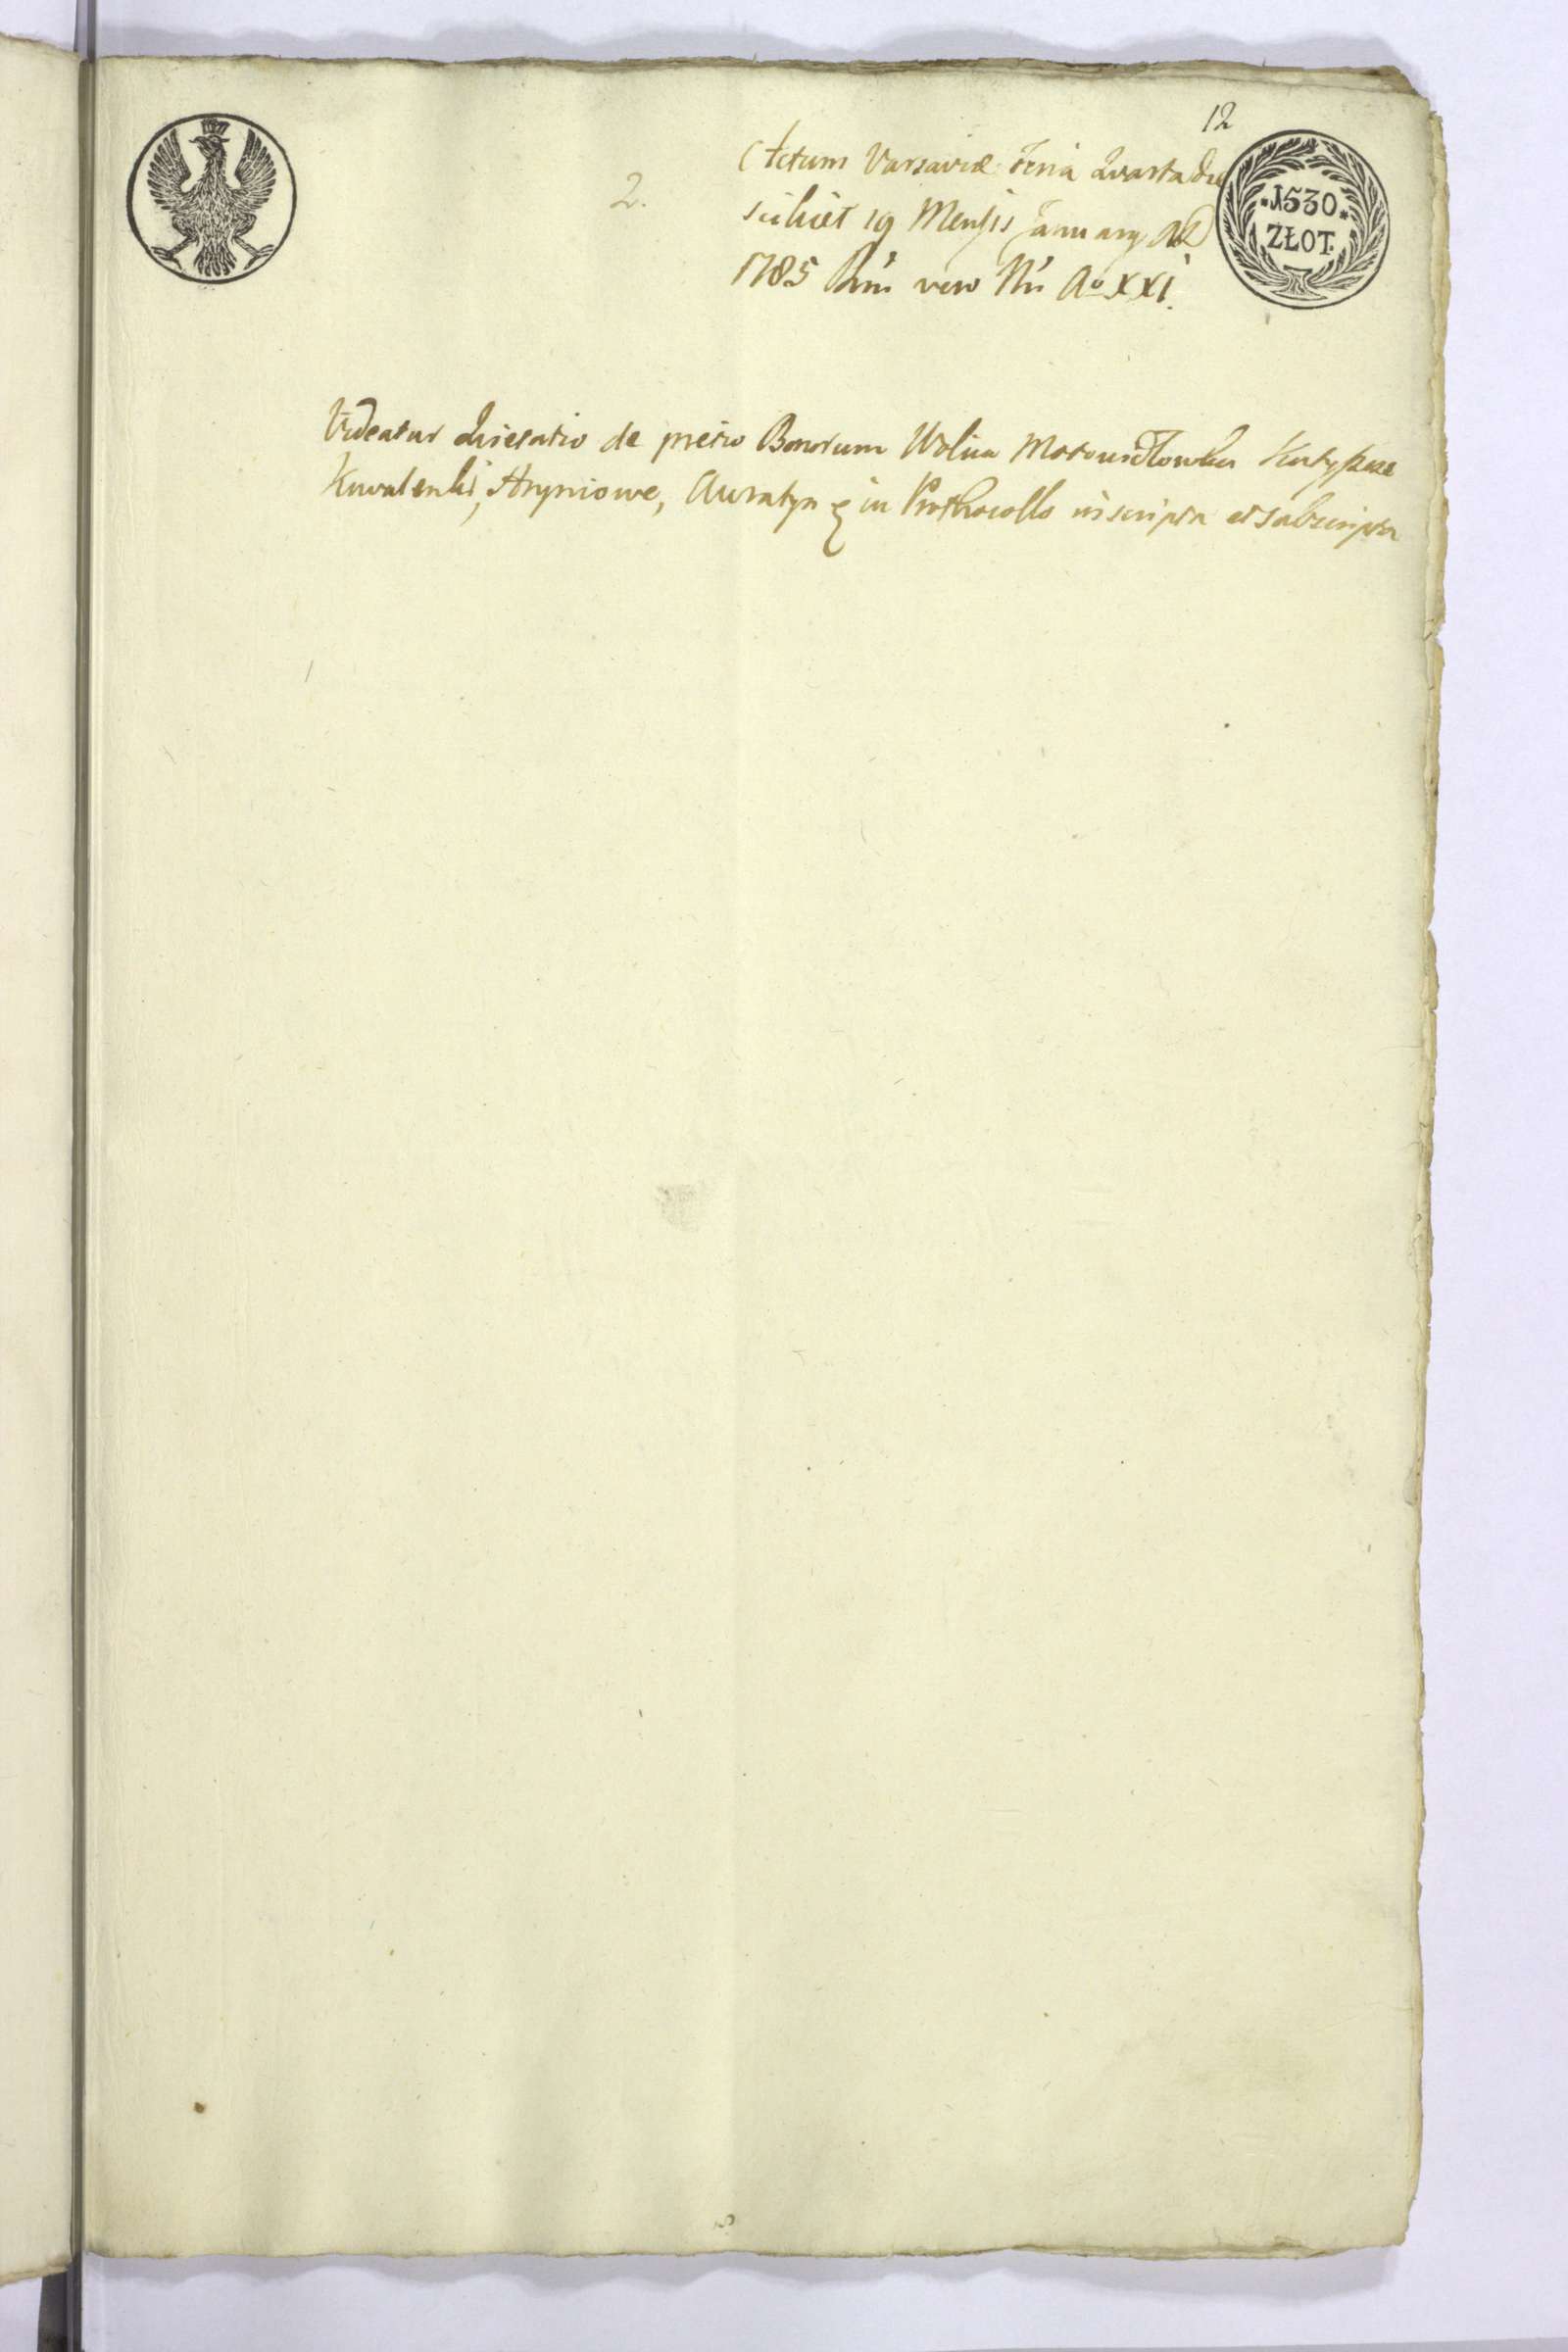 12
2.
Actum Varsaviæ Feria Quarta die
scilicet 19 Mensis January AD
1785 Rni vero Nri Ao XXI.
.1530.
ZŁOT.
Videatur Quietatio de pretio Bonorum Wolica Motowidłowka
Kowalenki, Hryniowe, Auratyn & in Prothocollo inscripta et subscripta